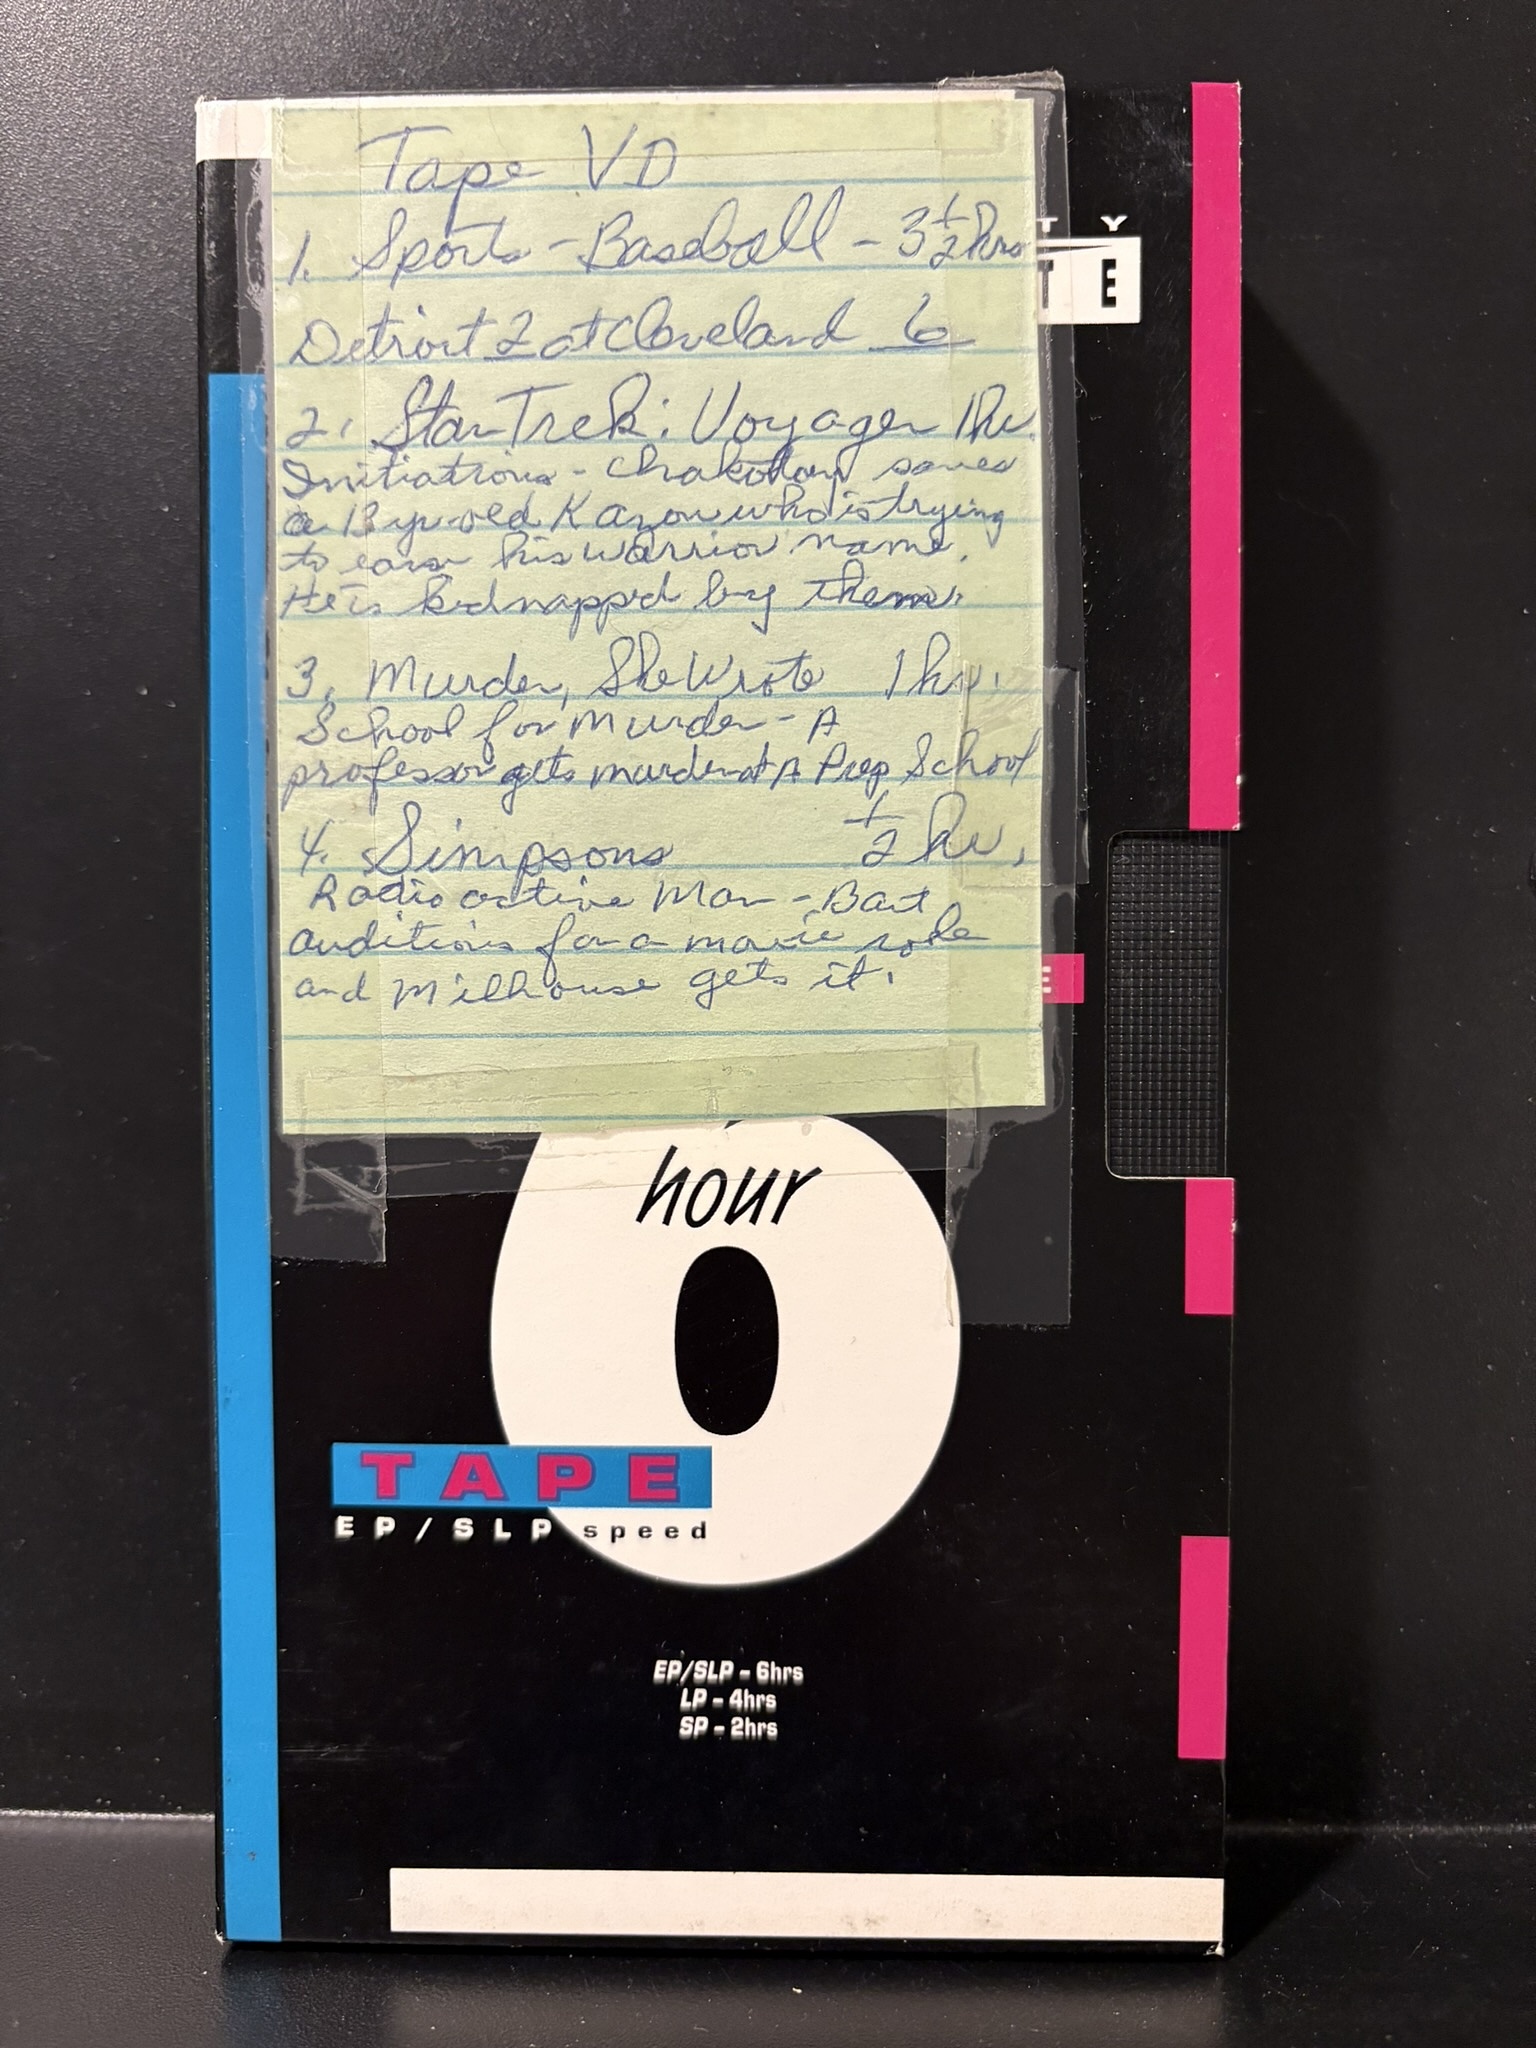 Tape VD
1. Sports - Baseball - 3 1/2 hrs
Detroit 2 at Cleveland 6
2. Star Trek: Voyager 1 hr.
Initiations - Chakotay saves
a 13 yr-old Kazon who is trying
to earn his warrior name.
He is kidnapped by them.
3. Murder, She Wrote 1 hr.
School for Murder - A
professor gets murder at A Prep School
4. Simpsons 1/2 hr.
Radioactive Man - Bart
auditions for a movie role
and Milhouse gets it.
TY
TE
E
hour
TAPE
EP/SLP speed
EP/SLP - 6hrs
LP - 4hrs
SP - 2hrs